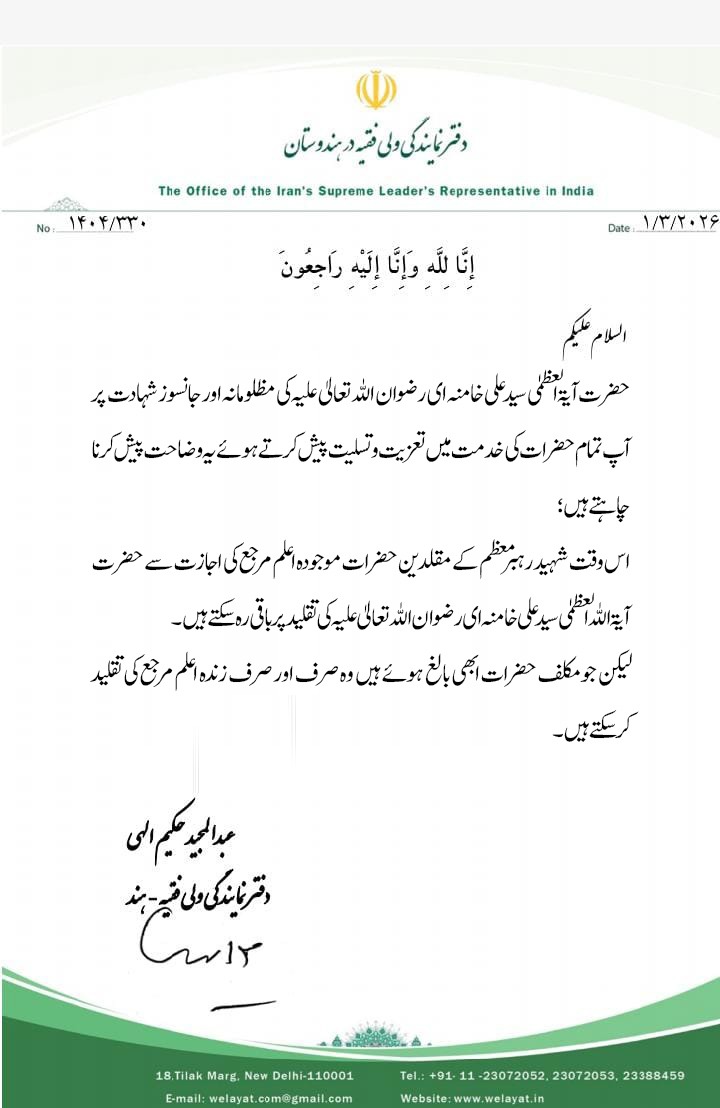 دفتر نمایندگی ولی فقیه در هندوستان
The Office of the Iran's Supreme Leader's Representative in India
No : ۱۴۰۴/۳۳۰
Date : ۱/۳/۲۰۲۶
إِنَّا لِلَّهِ وَإِنَّا إِلَيْهِ رَاجِعُونَ
السلام علیکم
حضرت آیۃ العظمٰی سید علی خامنہ ای رضوان اللہ تعالیٰ علیہ کی مظلومانہ اور جانسوز شہادت پر
آپ تمام حضرات کی خدمت میں تعزیت و تسلیت پیش کرتے ہوئے یہ وضاحت پیش کرنا
چاہتے ہیں؛
اس وقت شہید رہبر معظم کے مقلدین حضرات موجودہ اعلم مرجع کی اجازت سے حضرت
آیۃ اللہ العظمٰی سید علی خامنہ ای رضوان اللہ تعالیٰ علیہ کی تقلید پر باقی رہ سکتے ہیں۔
لیکن جو مکلف حضرات ابھی بالغ ہوئے ہیں وہ صرف اور صرف زندہ اعلم مرجع کی تقلید
کر سکتے ہیں۔
عبدالمجید حکیم الہی
دفتر نمایندگی ولی فقیہ - ہند
18,Tilak Marg, New Delhi-110001
Tel.: +91- 11 -23072052, 23072053, 23388459
E-mail: welayat.com@gmail.com
Website: www.welayat.in